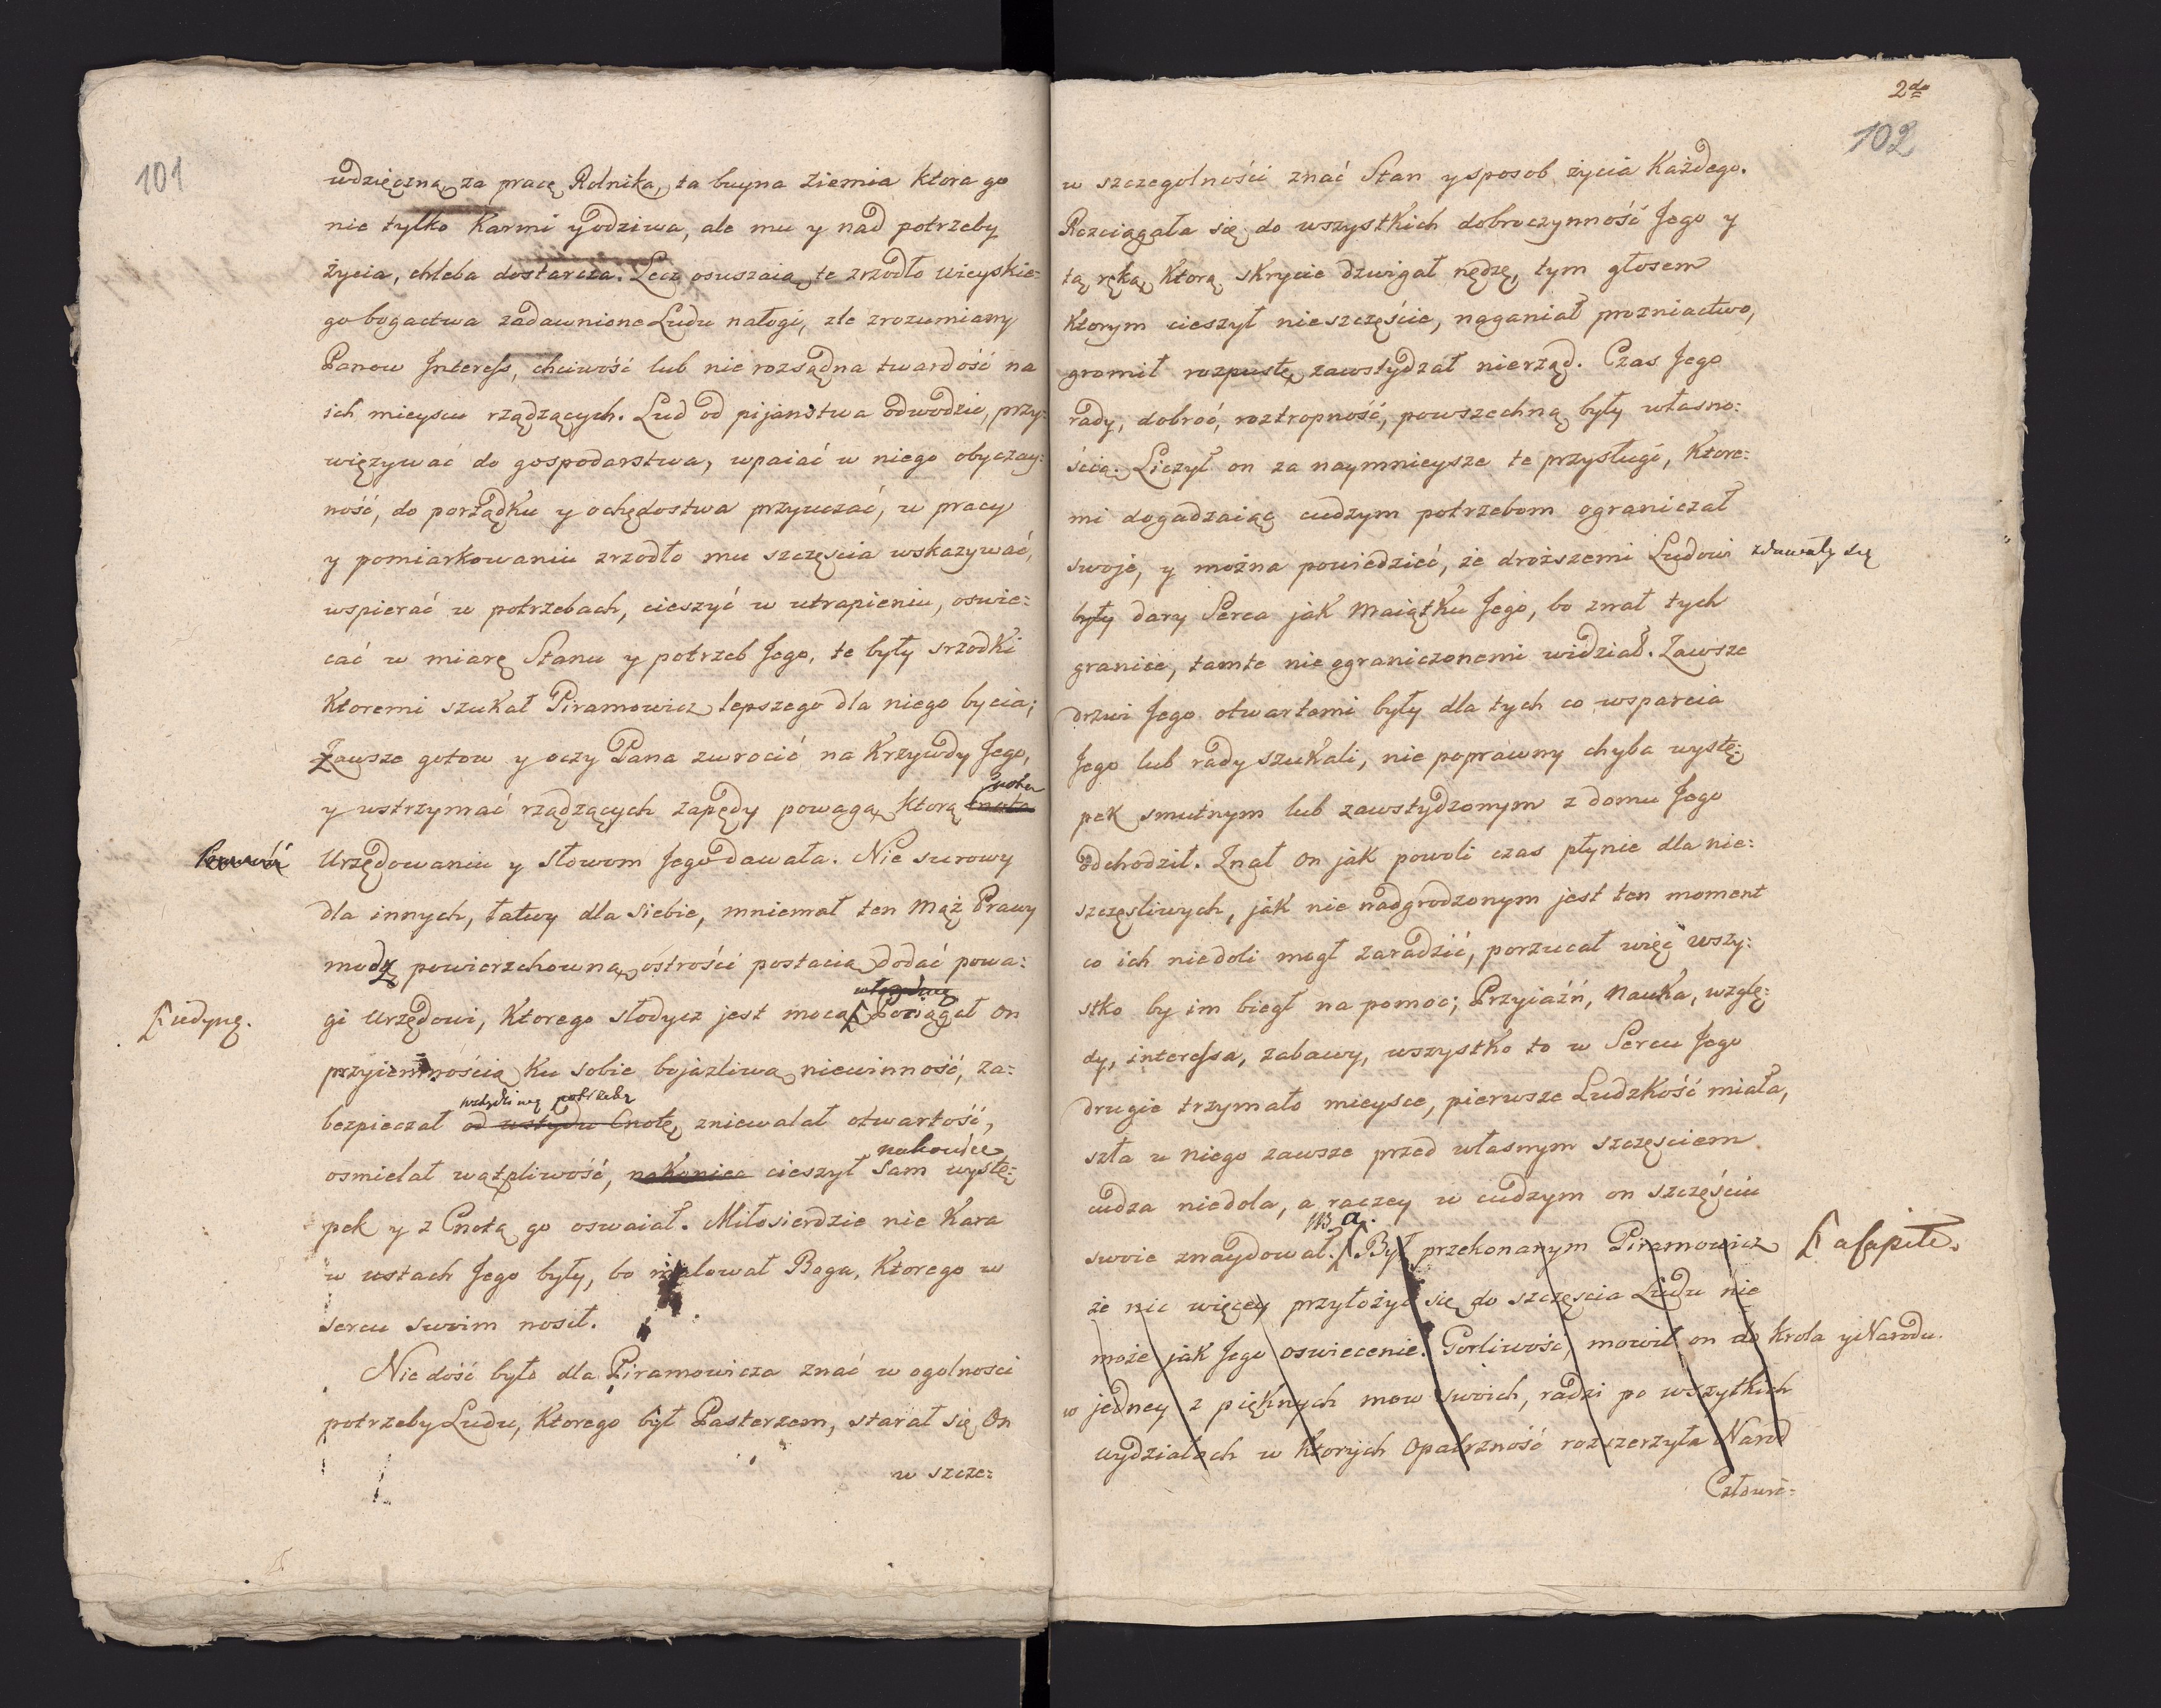 101
wdzięczną za pracę Rolnika, ta buyna Ziemia ktora go
nie tylko Karmi y odziwa, ale mu y nad potrzeby
życia, chleba dostarcza. Lecz osuszaią te zrzodło wieyskie=
go bogactwa zadawnione Ludu nałogi, złe zrozumiany
Panow Interess, chciwość lub nie rozsądna twardość na
ich mieyscu rządzących. Lud od pijanstwa odwodzić, przy=
więzywać do gospodarstwa, wpaiać w niego obyczay=
ność, do porządku y ochędostwa przyuczać, w pracy
y pomiarkowaniu zrzodło mu szczęscia wskazywać,
wspierać w potrzebach, cieszyć w utrapieniu, oswie=
cać w miarę Stanu y potrzeb Jego, te były srzodki
Ktoremi szukał Piramowicz lepszego dla niego bycia;
Zawsze gotow y oczy Pana zwrocić na Krzywdy Jego,
cnota
y wstrzymać rządzących zapędy powagą, ktorą Cnota
Urzędowaniu y Słowom Jego dawała. Nie surowy
dla innych, łatwy dla siebie, mniemał ten Mąż Prawy
mody powierzchowną ostrości postacią dodać powa=
gi Urzędowi, Ktorego słodycz jest mocą Pociągał On
jedyną.
przyiemnością Ku sobie bojazliwą niewinność, za=
wstydliwą potrzebę
bezpieczał od wstydu Cnotę, zniewalał otwartość,
nakoniec
osmielał wątpliwość, nakoniec cieszył Sam wystę=
pek y z Cnotą go oswaiał. Miłosierdzie nie Kara
w ustach Jego były, bo malował Boga, Ktorego w
sercu swoim nosił.
Nie dość było dla Piramowicza znać w ogolnosci
potrzeby Ludu, Ktorego był Pasterzem, starał się On
w szcze=
2do
102
w szczegolności znać Stan y sposob życia Każdego.
Rozciągała się do wszystkich dobroczynność Jego y
tą ręką, Ktorą skrycie dzwigał nędzę, tym głosem
Ktorym cieszył nieszczęście, naganiał prozniactwo,
gromił rozpustę, zawstydzał nierząd. Czas Jego
rady, dobroć, roztropność, powszechną były własno=
ścią. Liczył on za naymnieysze te przysługi, Ktore=
mi dogadzaiąc cudzym potrzebom ograniczał
swoje, y można powiedzieć, że droższemi Ludowi zdawały się
były dary Serca jak Maiątku Jego, bo znał tych
granice, tamte nieograniczonemi widział. Zawsze
drzwi Jego otwartemi były dla tych co wsparcia
Jego lub rady szukali, nie poprawny chyba wystę=
pek smutnym lub zawstydzonym z domu Jego
odchodził. Znał On jak powoli czas płynie dla nie=
szczęsliwych, jak nie nadgrodzonym jest ten moment
co ich niedoli mogł zaradzić, porzucał więc wszy=
stko by im biegł na pomoc; Przyiaźń, Nauka, wzglę=
dy, interessa, zabawy, wszystko to w Sercu Jego
drugie trzymało mieysce, pierwsze Ludzkość miała,
szła u niego zawsze przed własnym szczęsciem
cudza niedola, a raczey w cudzym on szczęściu
NB a.
swoie znaydował. Był przekonanym Piramowicz a capite.
że nic więcey przyłożyć się do szczęscia Ludu nie
może jak Jego oswiecenie. Gorliwość, mowił on do Krola y Narodu
w jedney z pięknych mow swoich, radzi po wszytkich
wydziałach w Ktorych Opatrzność rozszerzyła Narod
Człowie=